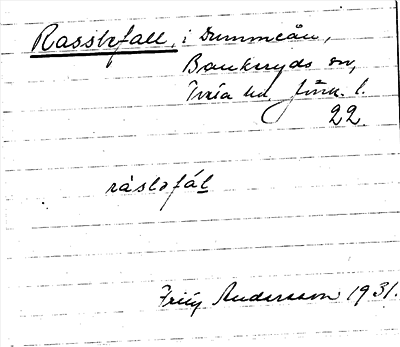 Rasslefall, i Dummeån,
Bankeryds sn,
Tveta hd Jönk. l.
22.
råsləfál
Friij Andersson 1931.